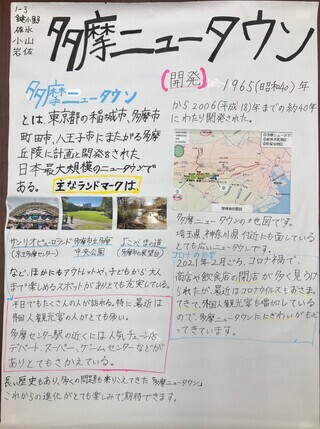 1-3
鍵小野
碓氷
小山
岩佐
多摩ニュータウン
多摩ニュータウン
とは、東京都の稲城市、多摩市
町田市、八王子市にまたがる多摩
丘陵に計画と開発をされた
日本最大規模のニュータウンで
ある。主なランドマークは、
サンリオピューロランド
(多摩センター)
多摩市立多摩
中央公園
よこやまの道
(多摩市の展望台)
など、ほかにもアウトレットや、子どもから大人
まで楽しめるスポットがありとても充実している。
平日でもたくさんの人が訪れる。特に最近は
外国人観光客の人がとても多い。
多摩センター駅の近くには人気チェーン店
デパート、スーパー、ゲームセンターなどが
ありとてもさかえている。
[開発]
1965(昭和40)年
から2006(平成18)年までの約40年
にわたり開発された。
多摩ニュータウンの地図です。
埼玉県、神奈川県付近にも面している
とても広いニュータウンです。
コロナの影響
2021年2月ごろ、コロナ禍で、
商店や飲食店の閉店が多く見うけ
られたが、最近はコロナウイルスもおさま
ってきて、外国人観光客も増加している
ので、多摩ニュータウンににぎわいがもど
ってきています。
長い歴史もあり、多くの問題も乗りこえてきた多摩ニュータウン。
これからの進化がとても楽しみで期待できます。